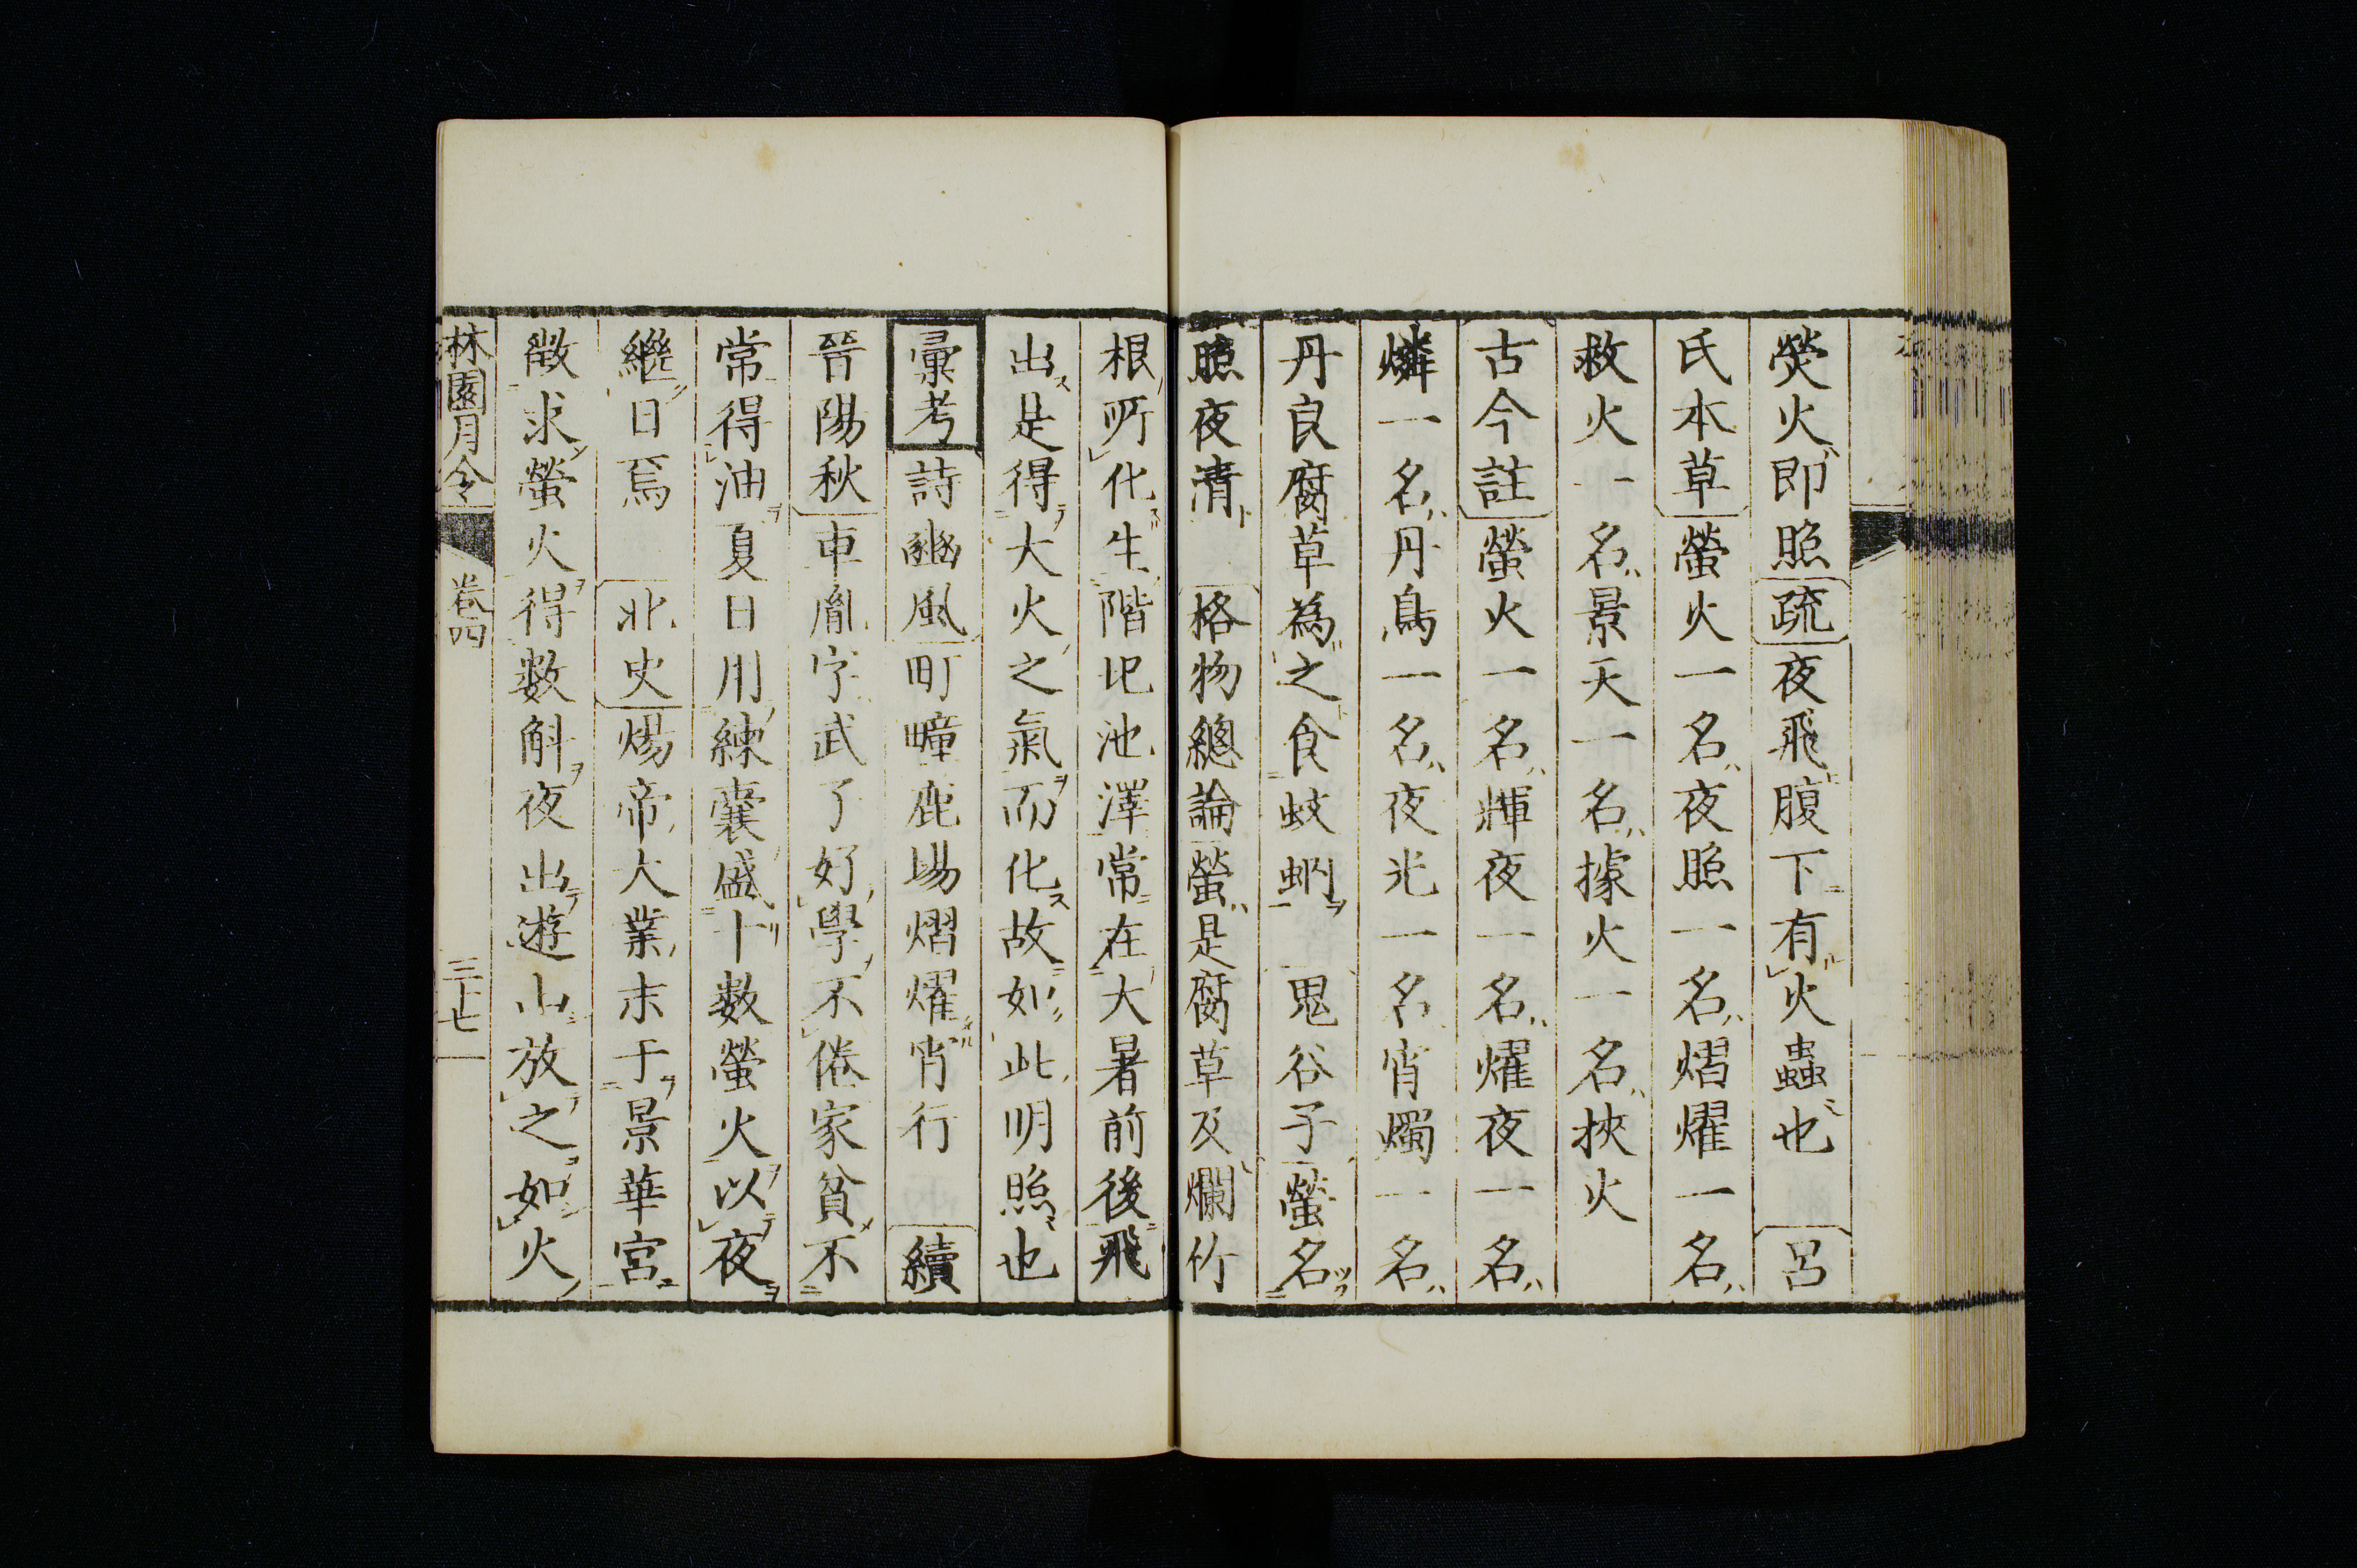 熒火即照疏夜飛腹下有火蟲也　呂
氏本草螢火一名夜照一名熠燿一名
救火一名景天一名據火一名挾火
古今註螢火一名輝夜一名燿夜一名
燐一名丹鳥一名夜光一名宵燭一名
丹良腐草為之食蚊蚋　鬼谷子螢名
照夜清　格物總論螢是腐草及爛竹
根所化生階圯池澤常在大暑前後飛
出是得大火之氣而化故如此明照也
彙考詩豳風町畽鹿場熠燿宵行　續
晉陽秋車胤字武子好學不倦家貧不
常得油夏日用練囊盛十數螢火以夜
繼日焉　北史煬帝大業末于景華宮
徵求螢火得數斛夜出遊山放之如火
林園月令　卷四　三十七